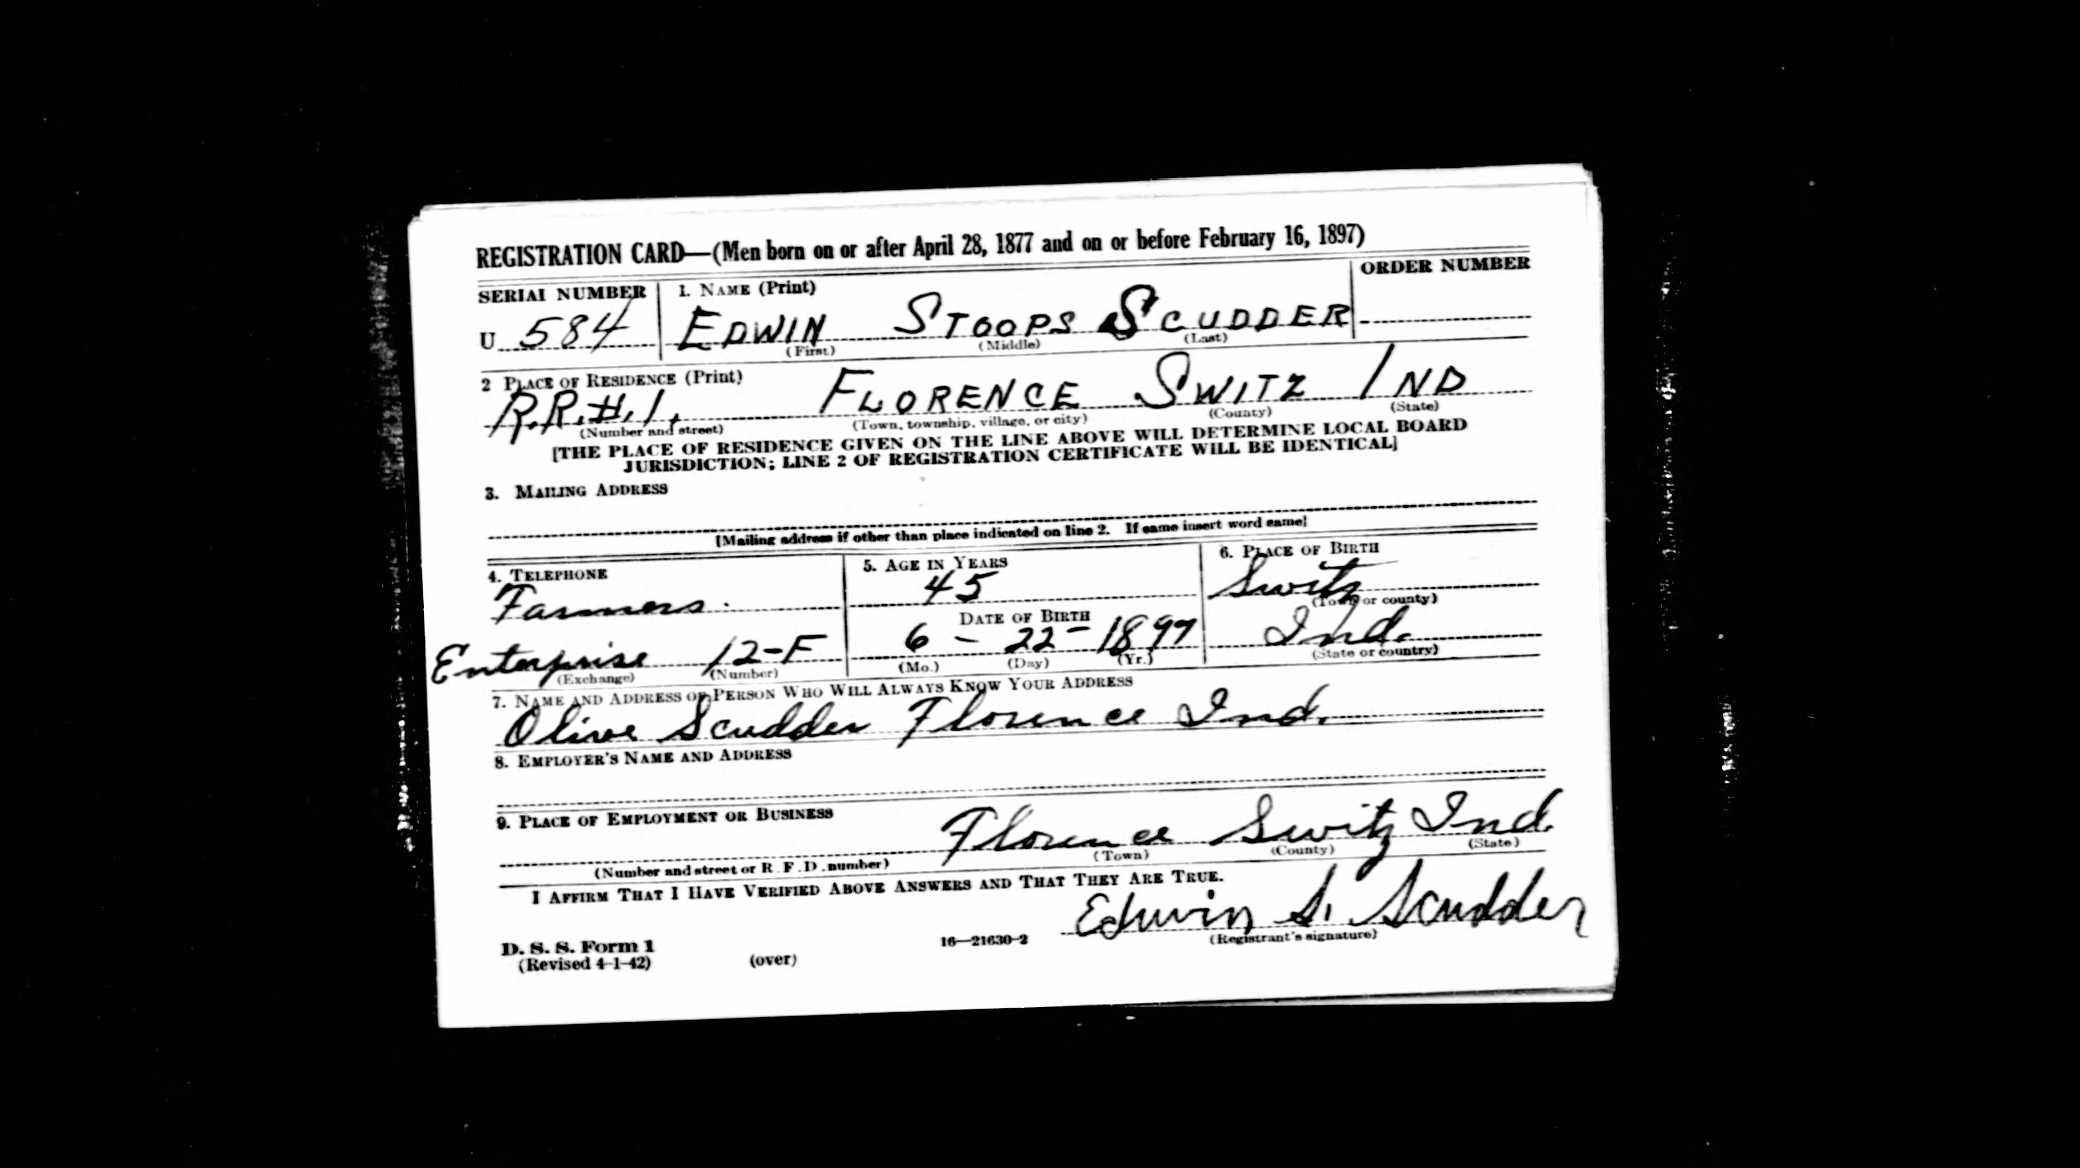 REGISTRATION CARD—(Men born on or after April 28, 1877 and on or before February 16, 1897)
SERIAL NUMBER 1. NAME (Print) ORDER NUMBER
U 584 EDWIN STOOPS SCUDDER
(First) (Middle) (Last)
2 PLACE OF RESIDENCE (Print)
R.R.#.1. FLORENCE SWITZ IND
(Number and street) (Town, township, village, or city) (County) (State)
[THE PLACE OF RESIDENCE GIVEN ON THE LINE ABOVE WILL DETERMINE LOCAL BOARD
JURISDICTION; LINE 2 OF REGISTRATION CERTIFICATE WILL BE IDENTICAL]
3. MAILING ADDRESS
[Mailing address if other than place indicated on line 2. If same insert word same]
4. TELEPHONE 5. AGE IN YEARS 6. PLACE OF BIRTH
Farmers. 45 Switz
(Town or county)
DATE OF BIRTH
Enterprise 12-F 6 - 22 - 1897 Ind.
(Exchange) (Number) (Mo.) (Day) (Yr.) (State or country)
7. NAME AND ADDRESS OF PERSON WHO WILL ALWAYS KNOW YOUR ADDRESS
Olive Scudder Florence Ind.
8. EMPLOYER'S NAME AND ADDRESS
9. PLACE OF EMPLOYMENT OR BUSINESS
Florence Switz Ind.
(Number and street or R. F. D. number) (Town) (County) (State)
I AFFIRM THAT I HAVE VERIFIED ABOVE ANSWERS AND THAT THEY ARE TRUE.
Edwin S. Scudder
D. S. S. Form 1 16—21630-2 (Registrant's signature)
(Revised 4-1-42) (over)